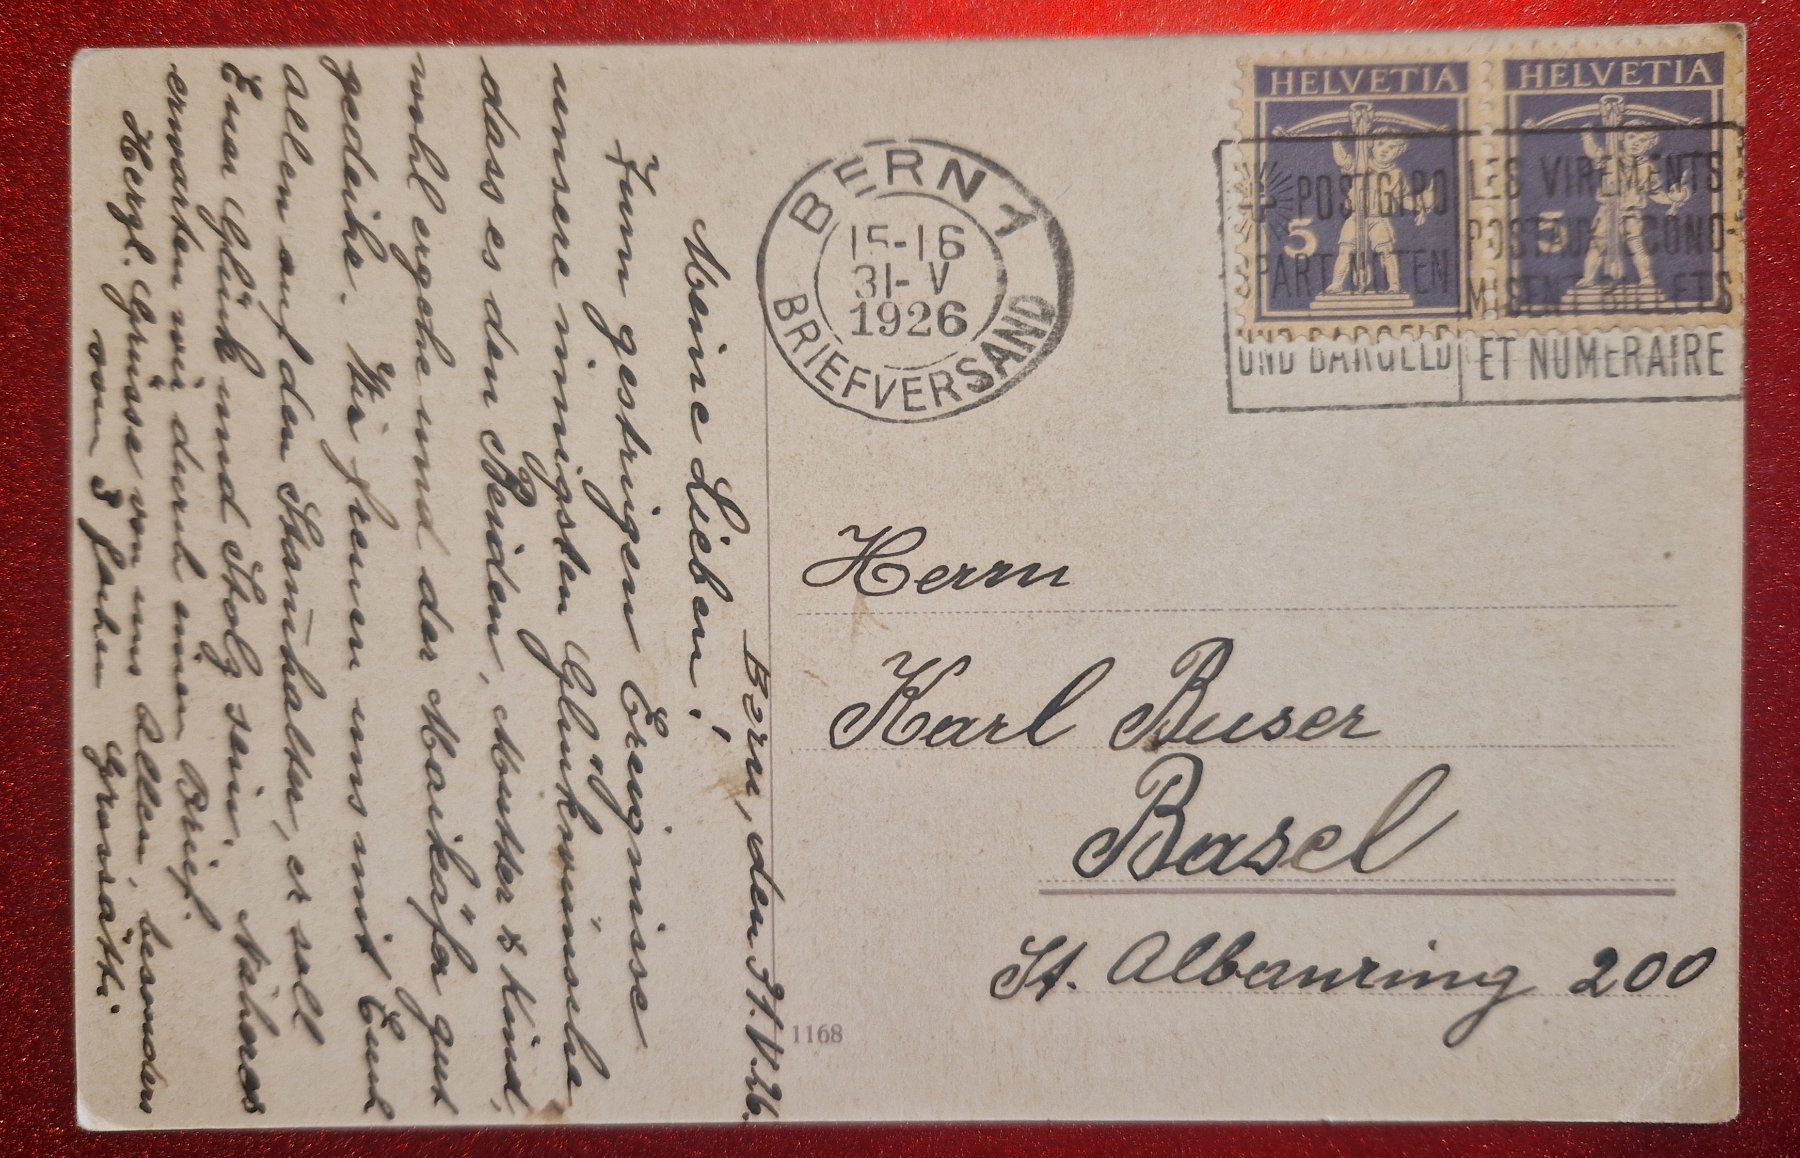 Bern, den 31.V.26.
Meine Lieben!
Zum gestrigen Ereignisse
unsere innigsten Glückwünsche
dass es den Beiden, Mutter & Kind,
wohl ergehe und der Maikäfer gut
gedeihe. Wir freuen uns mit Euch
Allen auf den Stam̄halter, er soll
Euer Glück und Stolz sein. Näheres
erwarten wir durch einen Brief.
Herzl. Grüsse von uns Allen, besonders
vom 3 fachen Grossätti.
BERN 1
15-16
31-V
1926
BRIEFVERSAND
HELVETIA
5
HELVETIA
5
POSTGIRO
SPART NOTEN
UND BARGELD
LES VIREMENTS
POSTAUX ECONO-
MISENT BILLETS
ET NUMERAIRE
Herrn
Karl Buser
Basel
St. Albanring 200
1168